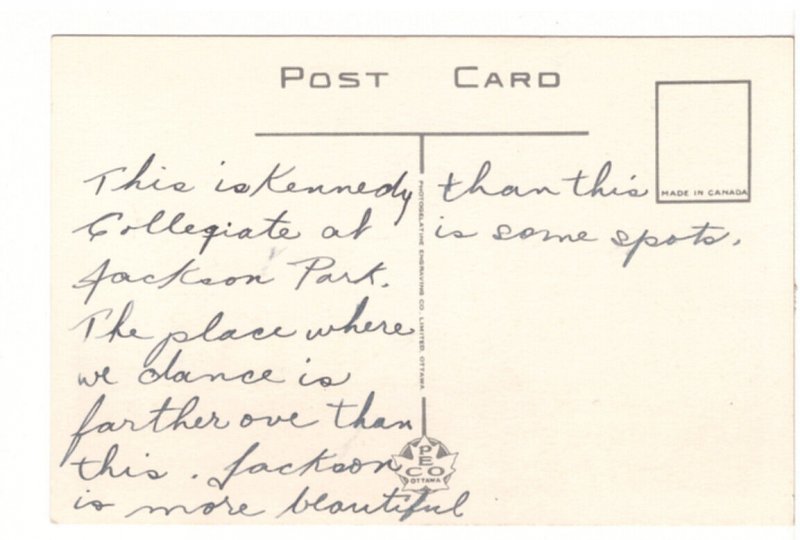 POST CARD
MADE IN CANADA
This is Kennedy
Collegiate at
Jackson Park.
The place where
we dance is
farther ove than
this. Jackson
is more beautiful
than this
is some spots.
PHOTOGELATINE ENGRAVING CO. LIMITED, OTTAWA
PECO
OTTAWA